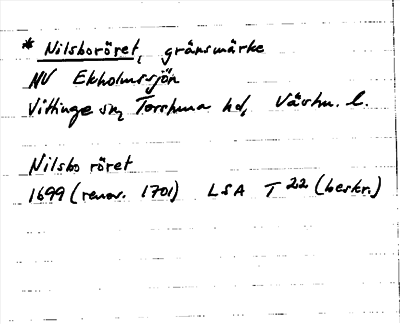 * Nilsboröret, gränsmärke
NV Ekholmssjön
Vittinge sn, Torstuna hd, Västm. l.
Nilsbo röret
1699 (renov. 1701) LSA T 22 (beskr.)